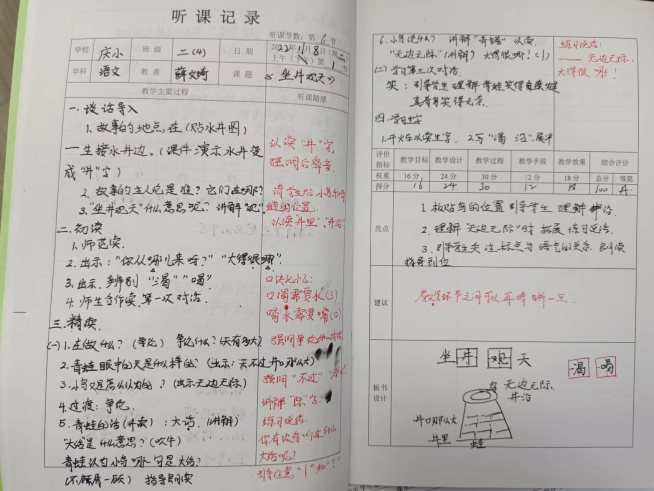 听课记录
听课节数：第 6 节
学校 庆小 班级 二（4） 日期 2022年11月8日（周二
上午（下午）第 1 节
学科 语文 教者 薛文婧 课题 《坐井观天》
教学主要过程 听课随感
一、谈话导入
1. 故事的地点，在（贴水井图）
一生接水井边。（课件演示水井变
成“井”字）
认读“井”字，
强调后鼻音。
2. 故事的主人公是谁？它们在哪？
请学生贴小鸟和青
蛙的位置
3. “坐井观天”什么意思呢？讲解“观”
认读“井里”、“井沿”
二、初读
1. 师范读
2. 出示：“你从哪儿来呀？”“大得很哪”
3. 出示，辨别“渴”“喝”
口诀记忆：
口渴需要水（氵）
4. 师生合作读第一次对话。
喝水需要嘴（口）
三、精读
（一）1. 在做什么？（争论）争论什么？（天有多大）
2. 青蛙眼中的天是什么样的？（出示：天不过井口那么大）
强调“不过”
3. 小鸟又是怎么认为的？（出示无边无际）
讲解“际”字
4. 过渡：争论
练习说话
5. 青蛙的话（齐读）：大话（讲解）
你有没有听过什么
大话是什么意思？（吹牛）
大话呢？
青蛙认为小鸟哪一句是大话？
（不姓成一段）指导朗读
引导注意“！”和“？”
6. 小鸟说什么？讲解“弄错”认读
“无边无际”（讲解）大得很哪！（！）
练习说话：
——无边无际，
大得很哪！
（二）学习第三次对话。
笑：引导学生理解青蛙笑得自信，
真有马笑得无奈。
四、学习生字
1. 开火车认读生字 2. 写“渴 喝”展评
评价指标 教学目标 教学设计 教学过程 教学手段 教学效果 综合评价
权重 16分 24分 30分 12分 18分 总分 等第
得分 16 24 30 12 18 100 A
亮点
1. 板贴鸟的位置引导学生理解井沿。
2. 理解“无边无际”时拓展练习说话。
3. 引导学生关注标点与语气的关系，朗读
指导到位
建议
教学环节之间可以再考虑一点。
板书设计
坐井观天
渴 喝
鸟 无边无际
井沿
井口那么大
井里
蛙